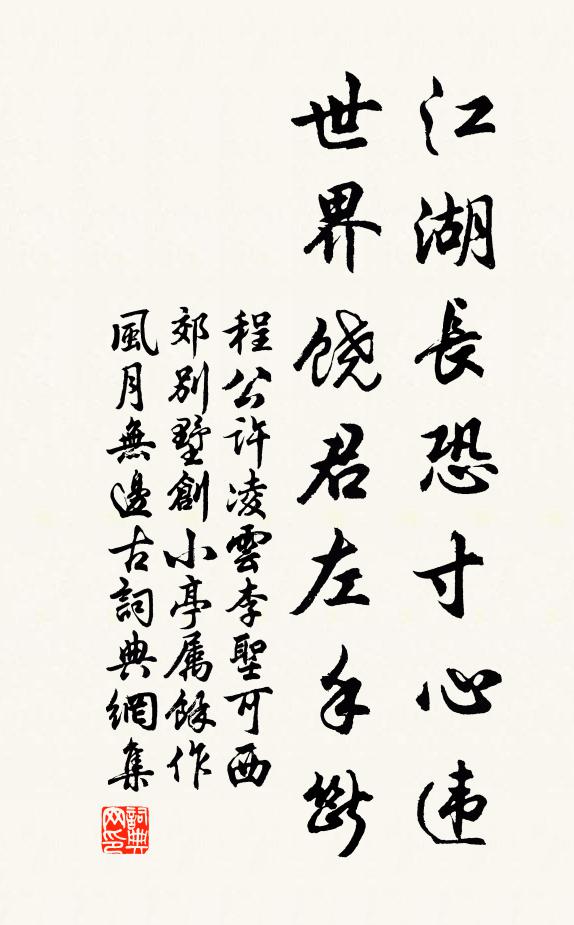 江湖長恐寸心违
世界饶君左手斷
程公許凌雲李聖可西
郊别墅創小亭属餘作
風月無邊古詞典網集
詞典网印